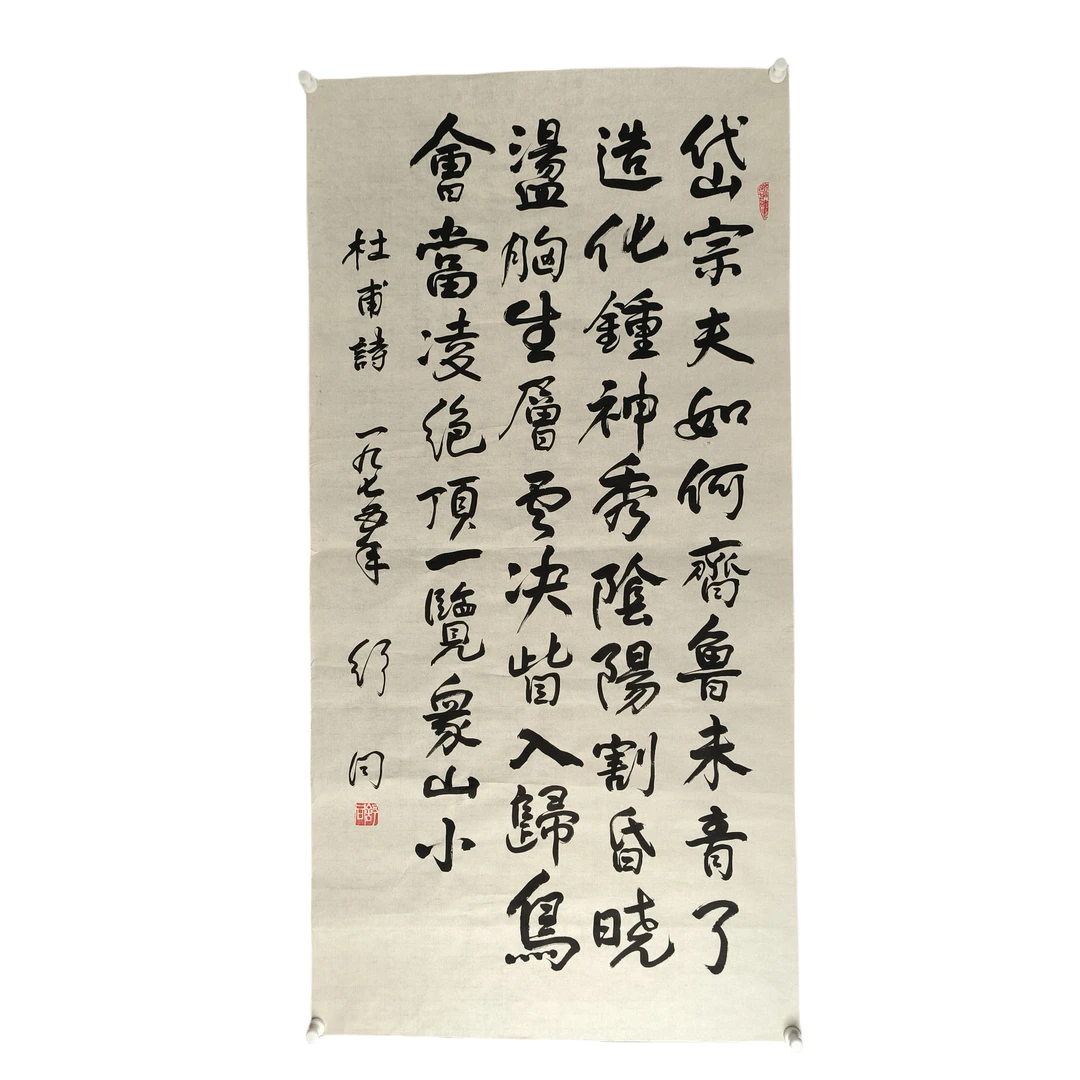 岱宗夫如何齊魯未青了
造化鍾神秀陰陽割昏曉
盪胸生層雲決眥入歸鳥
會當凌絕頂一覽眾山小
杜甫詩 一九七五年 舒同
舒同